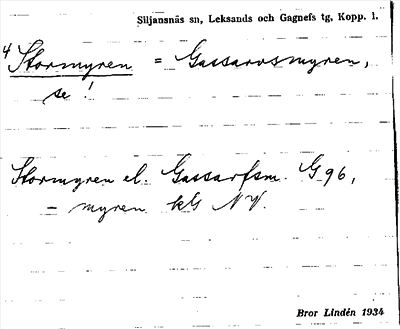 Siljansnäs sn, Leksands och Gagnefs tg, Kopp. l.
4 Stormyren = Gassarvsmyren,
se!
Stormyren el. Gassarfsm. G 96,
– myren kG NV.
Bror Lindén 1934